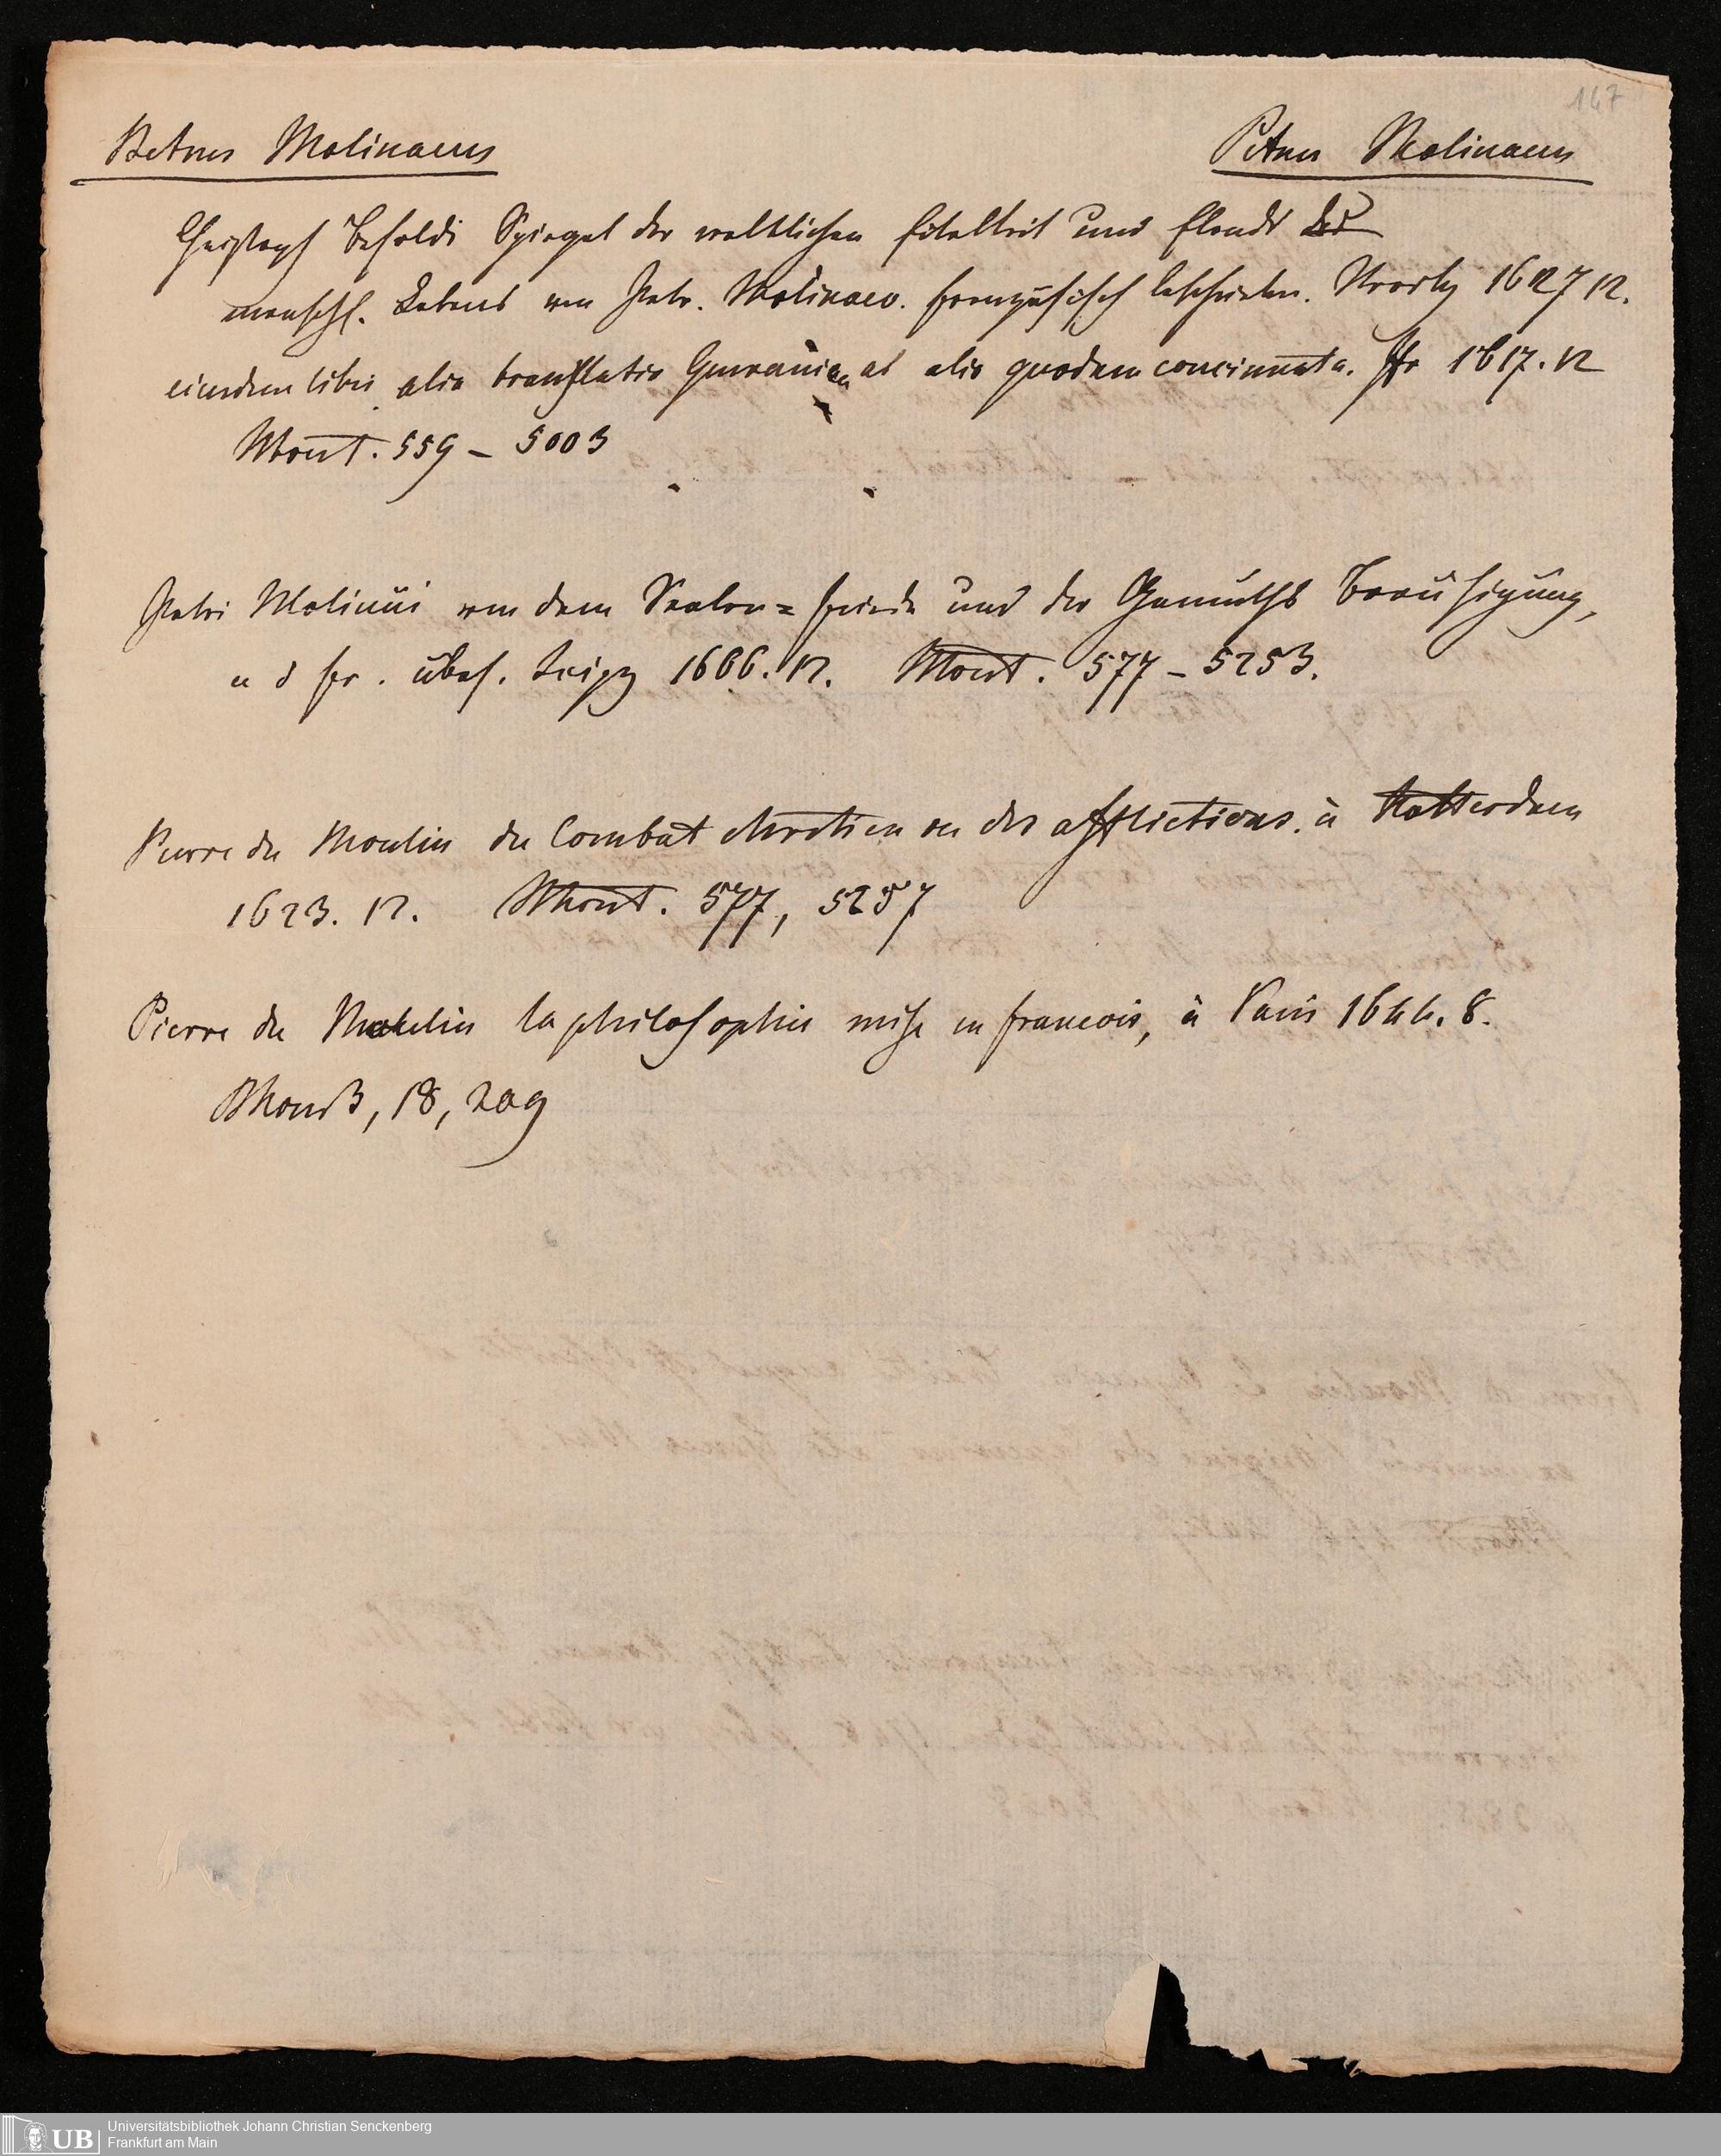 167
Petrus Molinaeus
Petrus Molinaeus
Christoph Besoldi Spiegel der weltlichen Eitelkeit und Elends des
menschl. Lebens von Petr. Molinaeo. französisch beschrieben. 1627 12.
eiusdem libri alia translatio Germanica ab alio quodam concinnata. 1617. 12
Mont. 559 – 5003
Petri Molinäi von dem Seelen=Friede und der Gemüths Beruhigung,
a d fr. übers. Leipzg 1666. 12. Mont. 577 – 5253.
Pierre du Moulin du Combat chrotien ou des afflictions. à Rotterdam
1623. 12. Mont. 577, 5257
Pierre du Moulin la philosophie mise en francois, à Paris 1644. 8.
18, 209
Universitätsbibliothek Johann Christian Senckenberg
Frankfurt am Main
UB